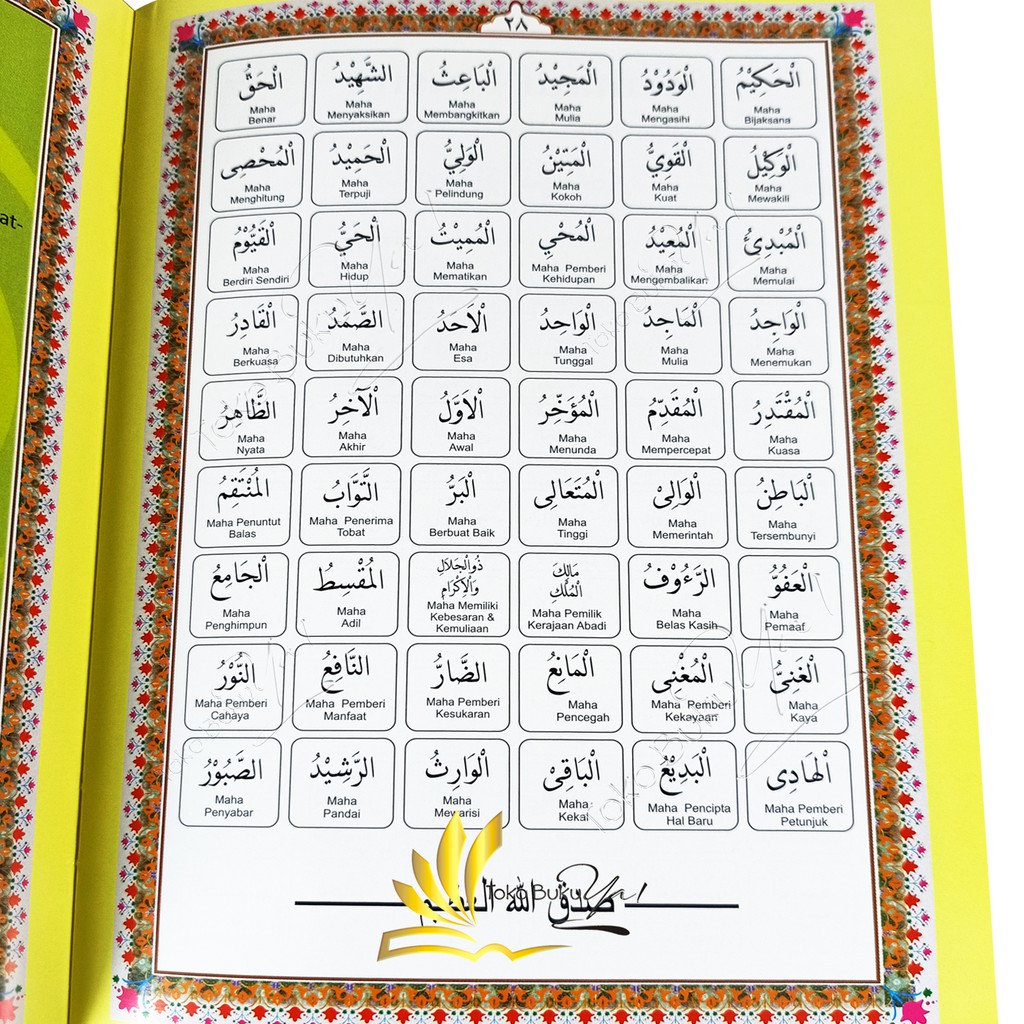 at-
٢٨
اَلْحَكِيْمُ
Maha
Bijaksana
اَلْوَدُوْدُ
Maha
Mengasihi
اَلْمَجِيْدُ
Maha
Mulia
اَلْبَاعِثُ
Maha
Membangkitkan
اَلشَّهِيْدُ
Maha
Menyaksikan
اَلْحَقُّ
Maha
Benar
اَلْوَكِيْلُ
Maha
Mewakili
اَلْقَوِيُّ
Maha
Kuat
اَلْمَتِيْنُ
Maha
Kokoh
اَلْوَلِيُّ
Maha
Pelindung
اَلْحَمِيْدُ
Maha
Terpuji
اَلْمُحْصِى
Maha
Menghitung
اَلْمُبْدِئُ
Maha
Memulai
اَلْمُعِيْدُ
Maha
Mengembalikan
اَلْمُحْيِ
Maha Pemberi
Kehidupan
اَلْمُمِيْتُ
Maha
Mematikan
اَلْحَيُّ
Maha
Hidup
اَلْقَيُّوْمُ
Maha
Berdiri Sendiri
اَلْوَاجِدُ
Maha
Menemukan
اَلْمَاجِدُ
Maha
Mulia
اَلْوَاحِدُ
Maha
Tunggal
اَلْاَحَدُ
Maha
Esa
اَلصَّمَدُ
Maha
Dibutuhkan
اَلْقَادِرُ
Maha
Berkuasa
اَلْمُقْتَدِرُ
Maha
Kuasa
اَلْمُقَدِّمُ
Maha
Mempercepat
اَلْمُؤَخِّرُ
Maha
Menunda
اَلْاَوَّلُ
Maha
Awal
اَلْآخِرُ
Maha
Akhir
اَلظَّاهِرُ
Maha
Nyata
اَلْبَاطِنُ
Maha
Tersembunyi
اَلْوَالِىْ
Maha
Memerintah
اَلْمُتَعَالِى
Maha
Tinggi
اَلْبَرُّ
Maha
Berbuat Baik
اَلتَّوَّابُ
Maha Penerima
Tobat
اَلْمُنْتَقِمُ
Maha Penuntut
Balas
اَلْعَفُوُّ
Maha
Pemaaf
اَلرَّءُوْفُ
Maha
Belas Kasih
مَالِكَ
الْمُلْكِ
Maha Pemilik
Kerajaan Abadi
ذُوالْجَلَالِ
وَالْاِكْرَامِ
Maha Memiliki
Kebesaran &
Kemuliaan
اَلْمُقْسِطُ
Maha
Adil
اَلْجَامِعُ
Maha
Penghimpun
اَلْغَنِىُّ
Maha
Kaya
اَلْمُغْنِى
Maha Pemberi
Kekayaan
اَلْمَانِعُ
Maha
Pencegah
اَلضَّارُّ
Maha Pemberi
Kesukaran
اَلنَّافِعُ
Maha Pemberi
Manfaat
اَلنُّوْرُ
Maha Pemberi
Cahaya
اَلْهَادِى
Maha Pemberi
Petunjuk
اَلْبَدِيْعُ
Maha Pencipta
Hal Baru
اَلْبَاقِىْ
Maha
Kekal
اَلْوَارِثُ
Maha
Mewarisi
اَلرَّشِيْدُ
Maha
Pandai
اَلصَّبُوْرُ
Maha
Penyabar
صدق الله العظيم
Toko Buku Yal